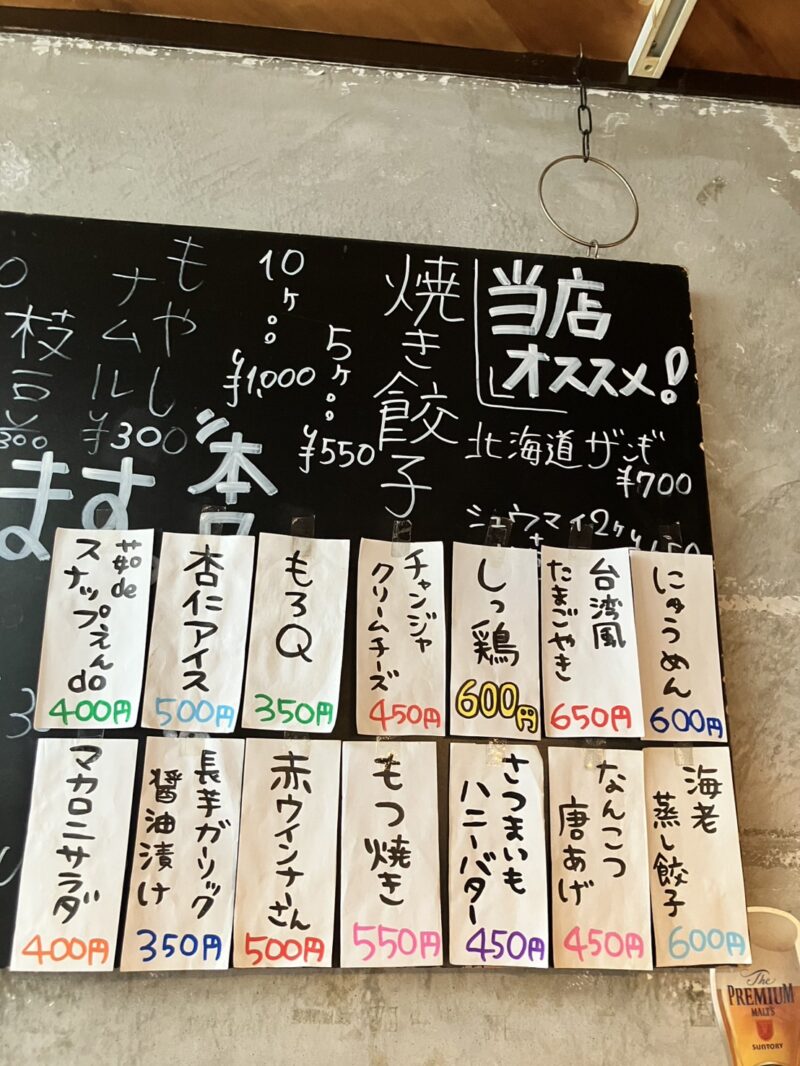 当店
オススメ!
北海道ザンギ
¥700
シュウマイ2ケ
焼き餃子
5ケ
¥550
10ケ
¥1,000
もやし
ナムル
¥300
枝豆
300
ます
にゅうめん
600円
台湾風
たまごやき
650円
しっ鶏
600円
チャンジャ
クリームチーズ
450円
もろQ
350円
杏仁アイス
500円
茹de
スナップえんdo
400円
海老
蒸し餃子
600円
なんこつ
唐あげ
450円
さつまいも
ハニーバター
450円
もつ焼き
550円
赤ウインナーさん
500円
長芋ガーリック
醤油漬け
350円
マカロニサラダ
400円
The
PREMIUM
MALT'S
SUNTORY